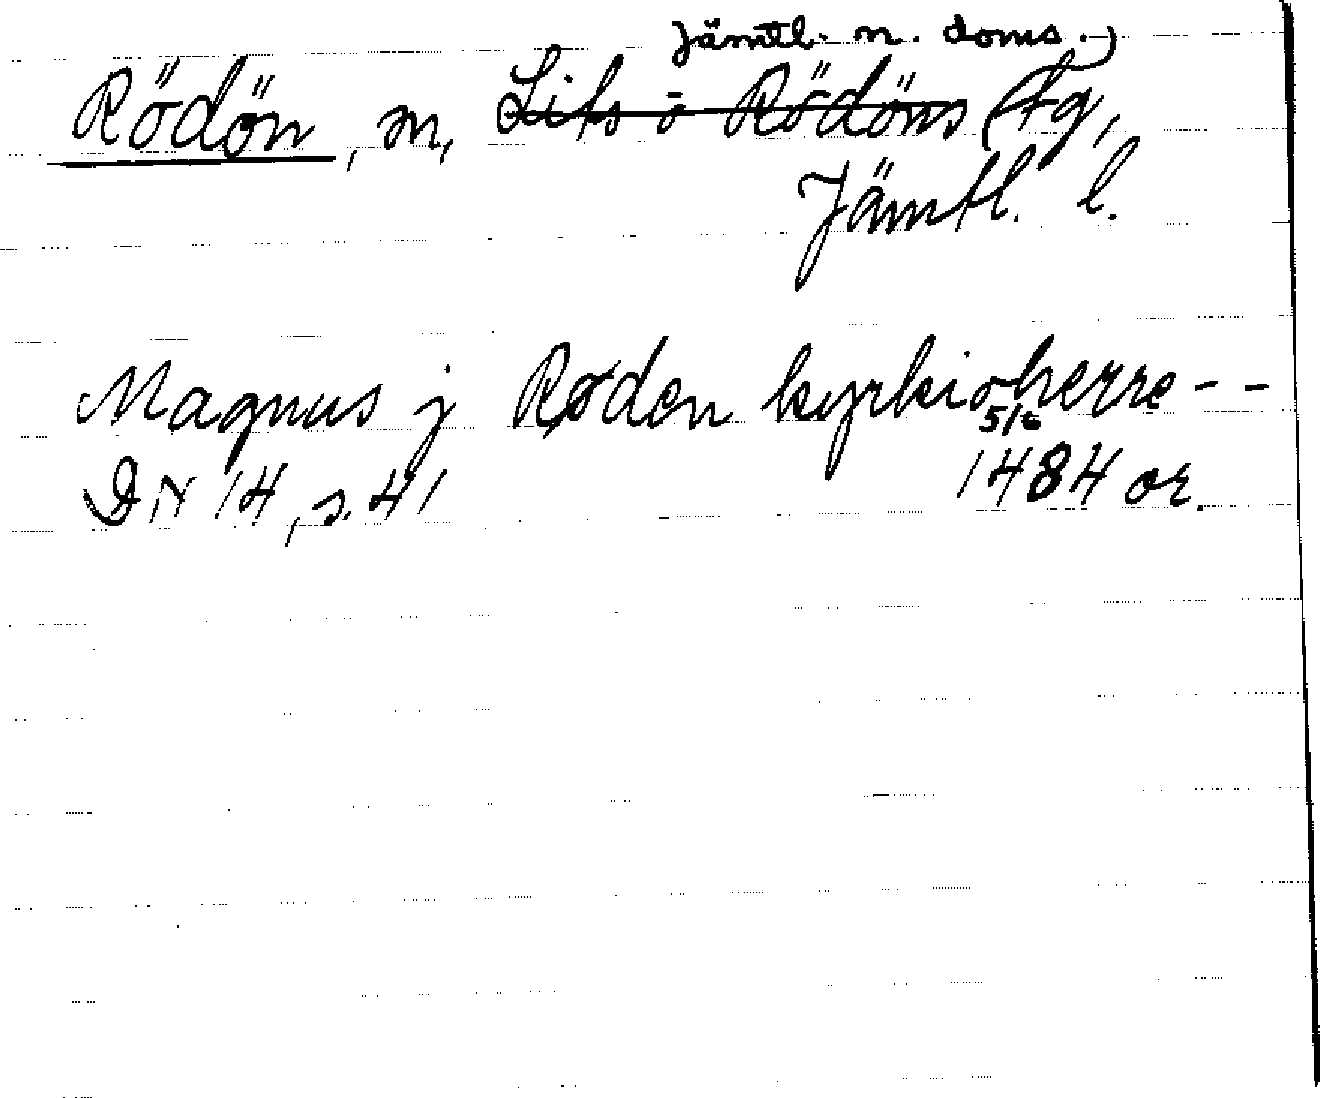 Jämtl. n. doms.
Rödön, sn, Lits o Rödöns tg,
Jämtl. l.
Magnus j Røden kyrkioherre - -
5/6
DN 14, s. 41 1484 or.